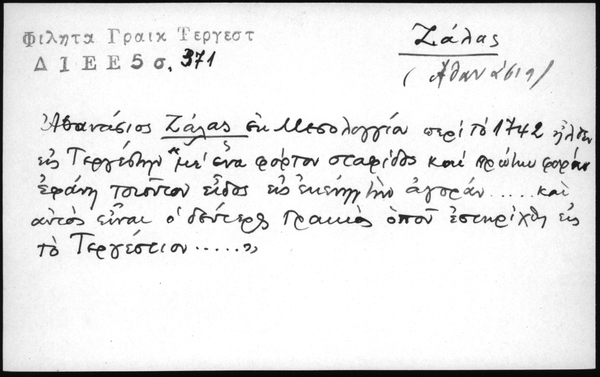 Φιλητα Γραικ Τεργεστ
Δ Ι Ε Ε 5 σ. 371
Ζάλας
(Αθανάσιη)
Ἀθανάσιος Ζάλας ἐκ Μεσολογγίου περί τό 1742 ἦλθεν
εἰς Τεργέστην "μέ ἕνα φόρτον σταφίδος καί πρώτην φοράν
ἐφάνη τοιοῦτον εἶδος εἰς ἐκείνην τήν ἀγοράν ..... καί
αὐτός εἶναι ὁ δεύτερος Γραικός ὁποῦ ἐστηρίχθη εἰς
τό Τεργέστιον ....."